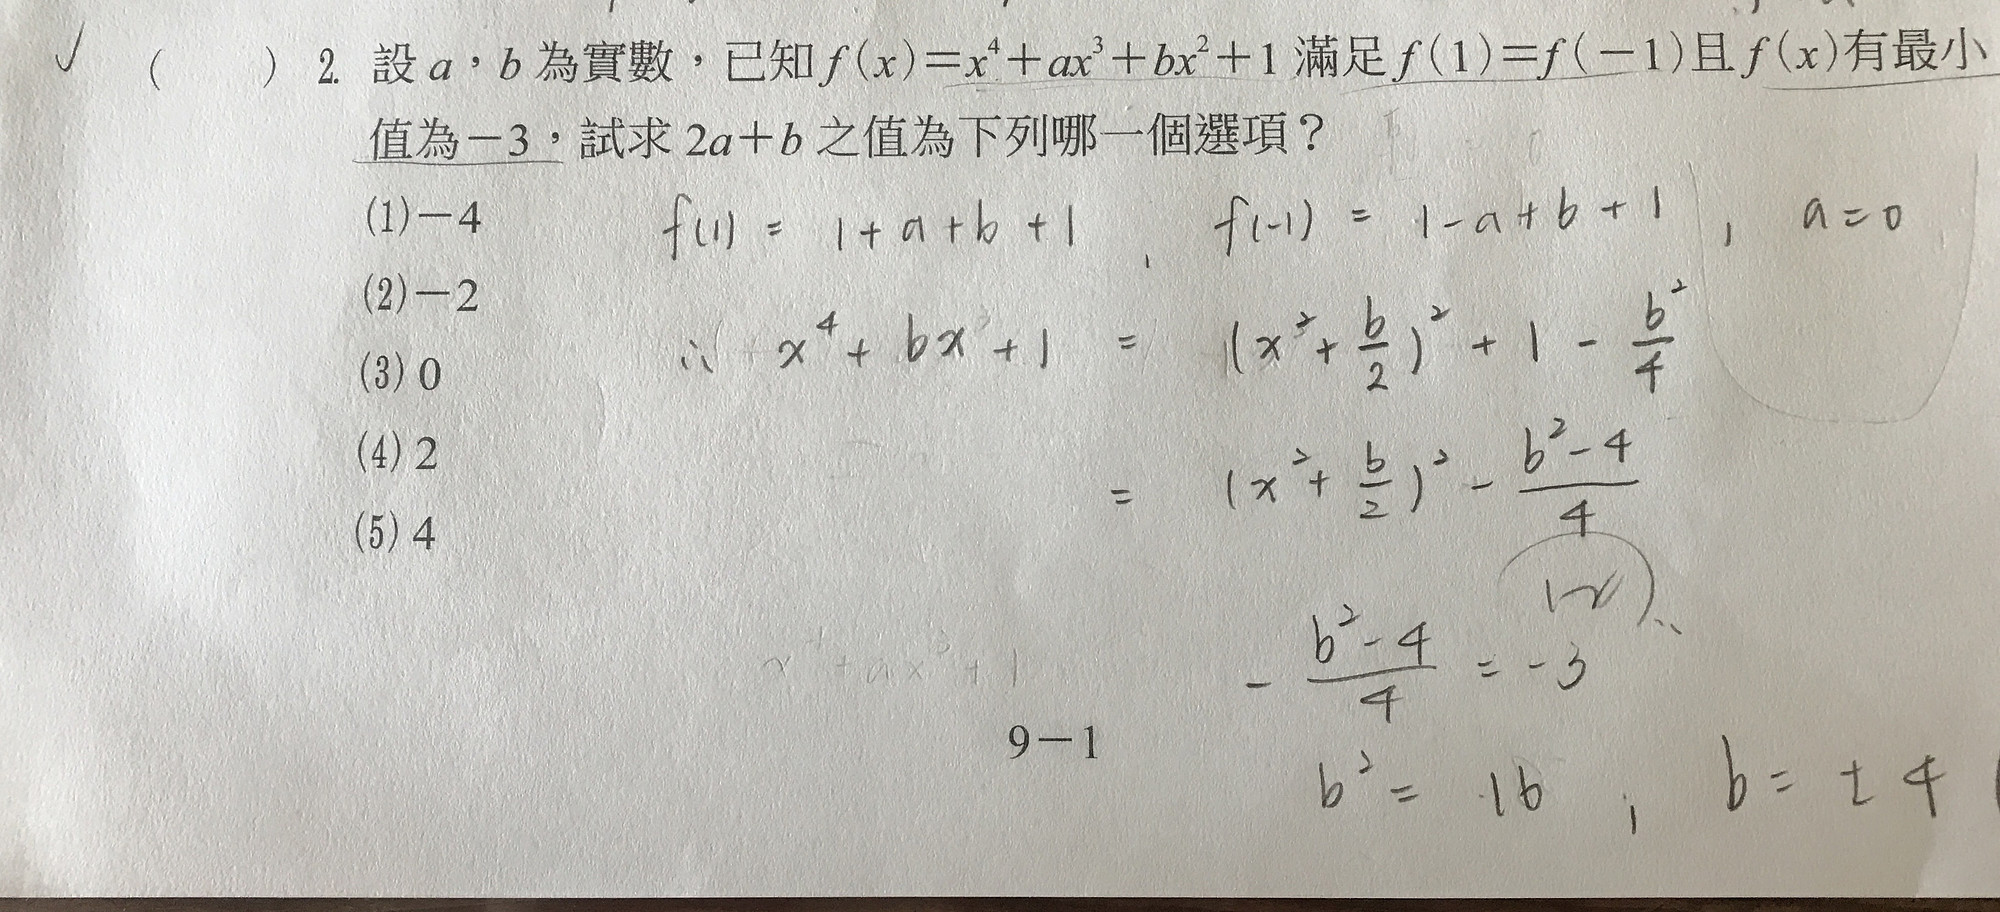 ✓ (　　) 2. 設 a，b 為實數，已知 f(x)＝x⁴＋ax³＋bx²＋1 滿足 f(1)＝f(－1)且 f(x)有最小
值為－3，試求 2a＋b 之值為下列哪一個選項？
(1)－4
f(1) = 1+a+b+1 , f(-1) = 1-a+b+1 , a=0
(2)－2
∴ x⁴+bx²+1 = (x²+b/2)²+1-b²/4
(3) 0
(4) 2
= (x²+b/2)²-(b²-4)/4
(5) 4
-(b²-4)/4 = -3
9－1
b² = 16 , b = ±4